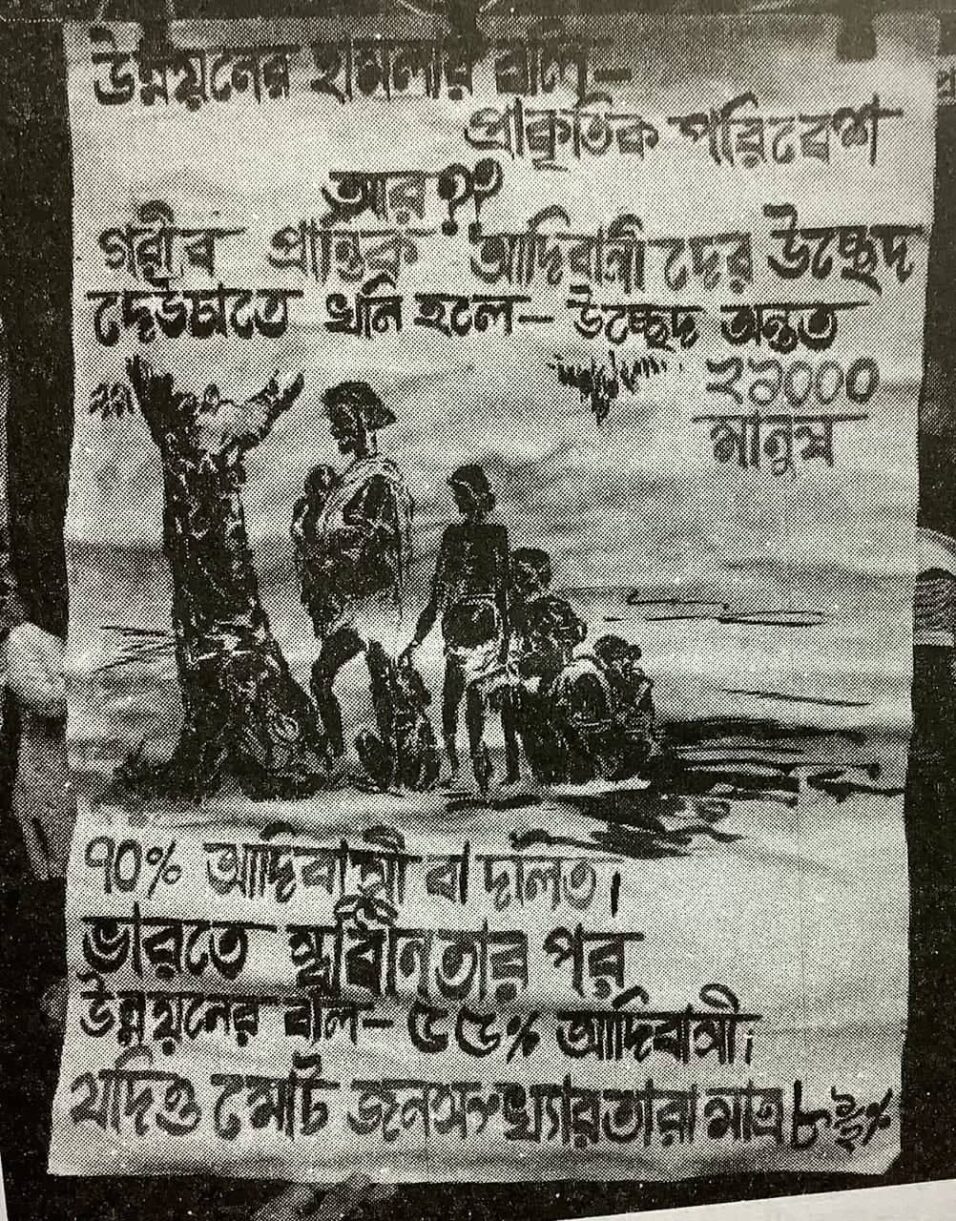 উন্নয়নের হামলার বলি–
প্রাকৃতিক পরিবেশ
আর ??
গরীব প্রান্তিক আদিবাসীদের উচ্ছেদ
দেউচাতে খনি হলে– উচ্ছেদ অন্তত
২১০০০
মানুষ
৭০% আদিবাসী বা দলিত।
ভারতে স্বাধীনতার পর
উন্নয়নের বলি– ৫৫% আদিবাসী।
যদিও মোট জনসংখ্যার তারা মাত্র ৮ ১/২%